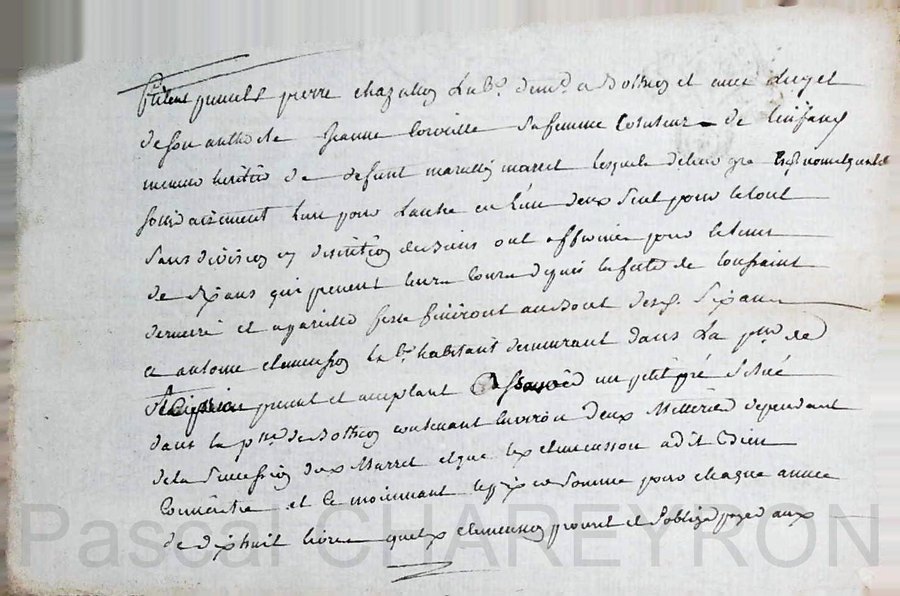 furent presents pierre chazallon lab.r demt. a Bothéon et avec luy et
de son authorité Jeanne Corveille sa femme tuteur de enfans
mineurs heritiers de defunt marcellin marret lesquels de leur gré
solidairement l'un pour l'autre en l'un deux seul pour le tout
sans division ny discution de biens ont affermé pour le tems
de six ans qui prenent leurs cours depuis la fete de toussaint
derniere et a pareille feste finiront au bout desd. six ans
a antoine clemenson lab.r habitant demeurant dans la p.sse de
present et acceptant un petit pré situé
dans la p.sse de Bothéon contenant environ deux Metterées dependant
de la succession dud Marret et que led clemenson a dit bien
connoitre et ce moiennant le prix et somme pour chaque année
de dix huit livres que led clemenson promet et s'oblige payer aux
Pascal CHAREYRON